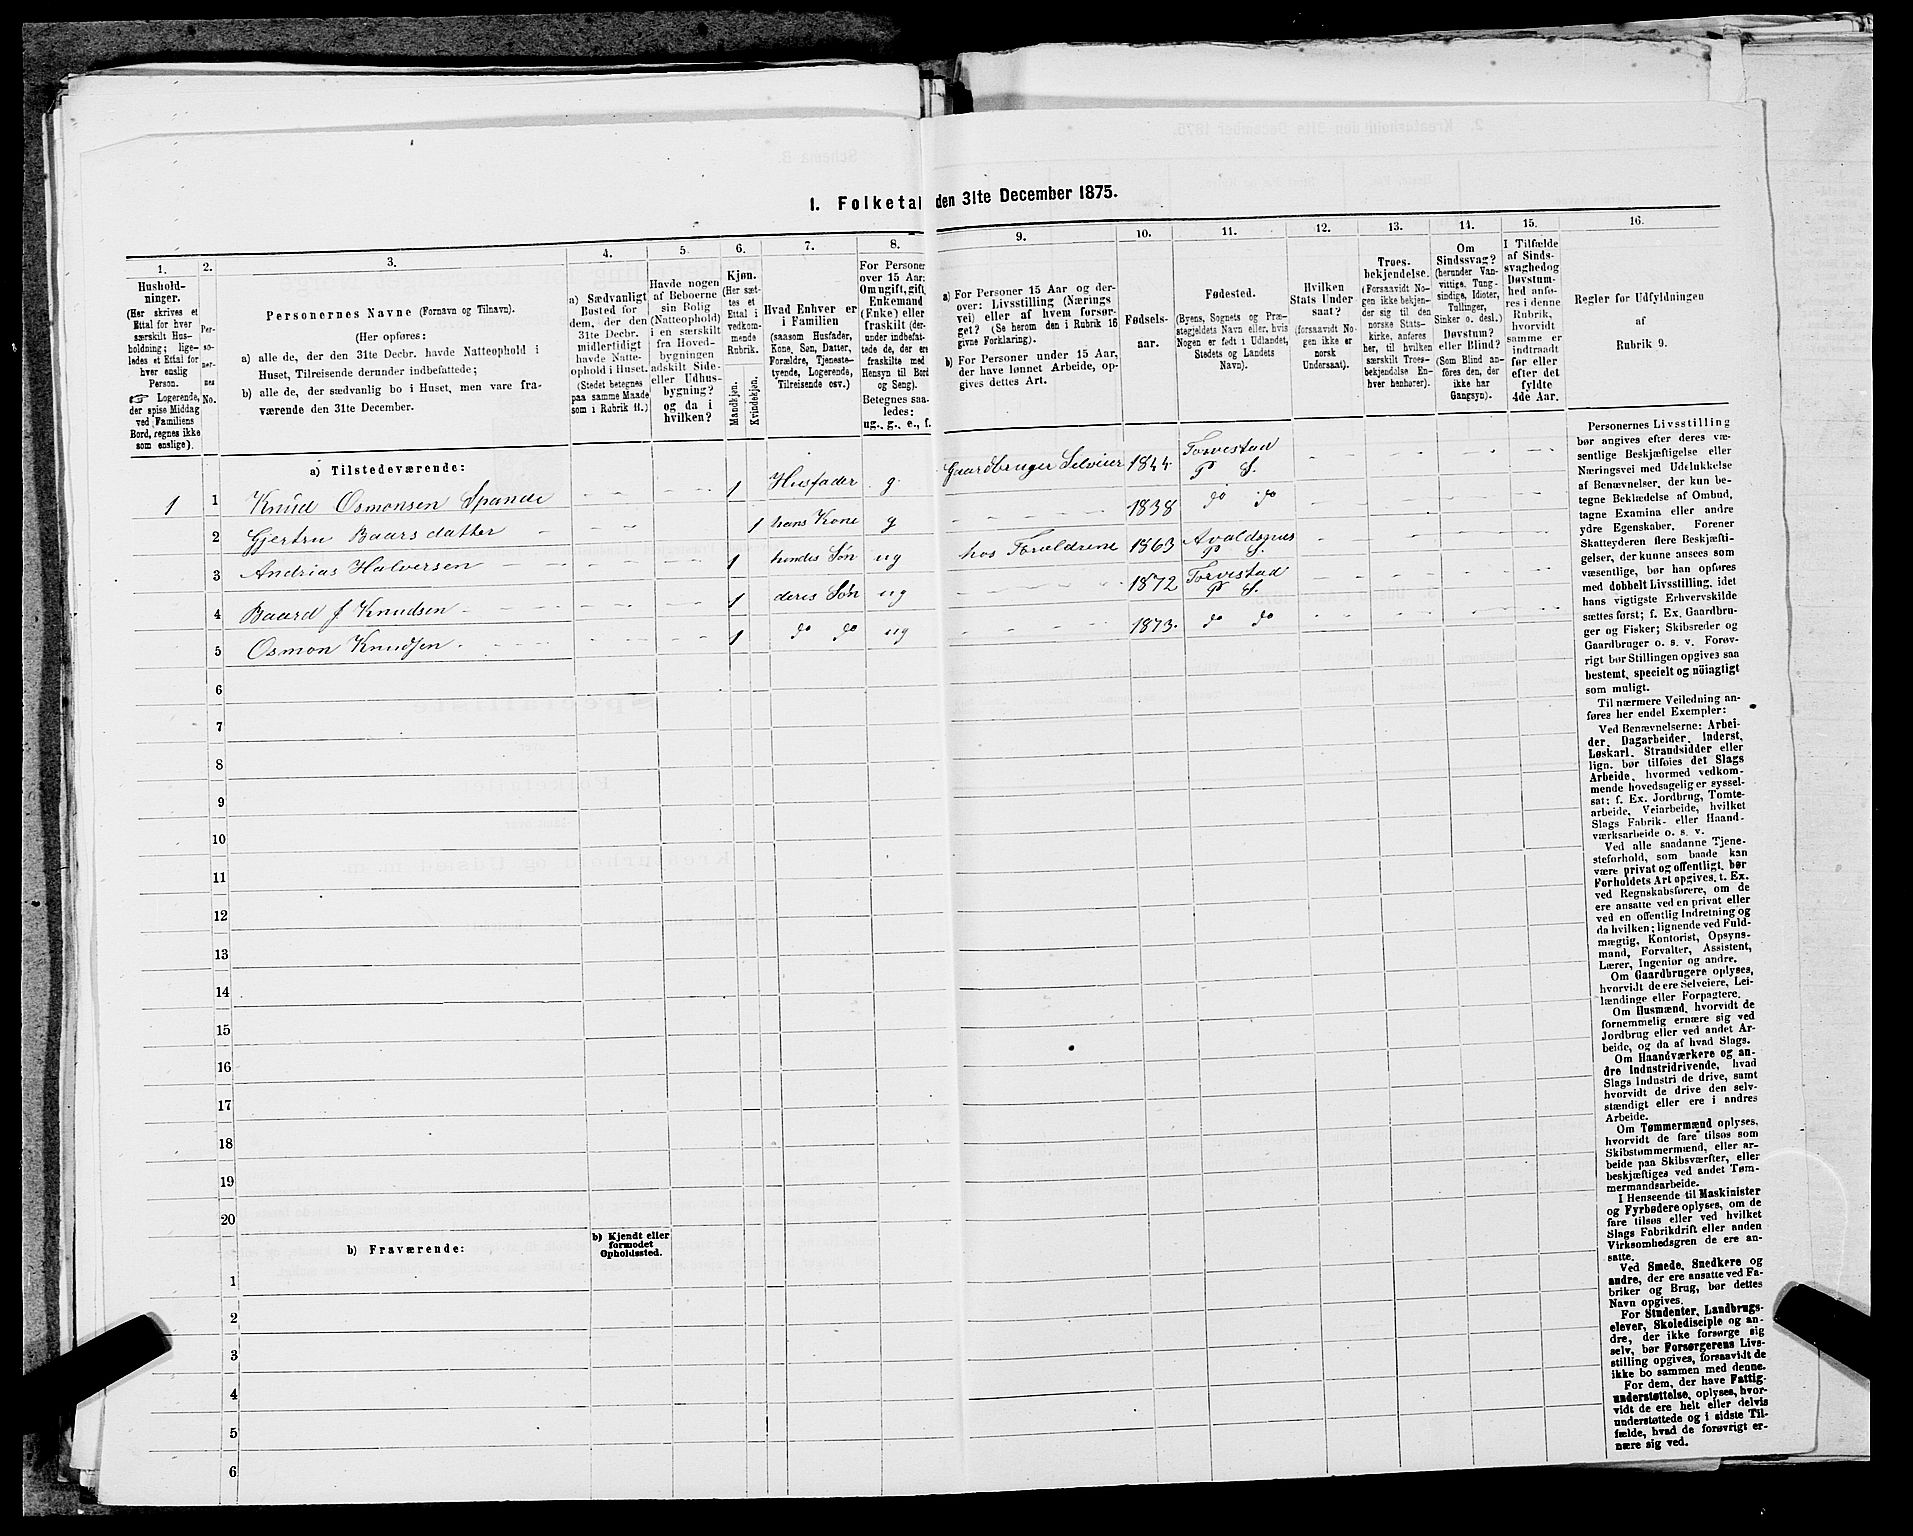 1. Folketal den 31te December 1875.
1. 2. 3. 4. 5. 6. 7. 8. 9. 10. 11. 12. 13. 14. 15. 16.
Hushold-
ninger.
(Her skrives et
Ettal for hver
særskilt Hus-
holdning; lige-
ledes et Ettal for
hver enslig
Person.
☞ Logerende,
der spise Middag
ved Familiens
Bord, regnes ikke
som enslige).
Per-
so-
ner-
nes
No.
Personernes Navne (Fornavn og Tilnavn).
(Her opføres:
a) alle de, der den 31te Decbr. havde Natteophold i
Huset, Tilreisende derunder indbefattede;
b) alle de, der sædvanlig bo i Huset, men vare fra-
værende den 31te December.
a) Sædvanligt
Bosted for
dem, der den
31te Decbr.
midlertidigt
havde Natte-
ophold i Huset.
(Stedet betegnes
paa samme Maade
som i Rubrik 11.)
Havde nogen
af Beboerne
sin Bolig
(Natteophold)
i en særskilt
fra Hoved-
bygningen
adskilt Side-
eller Udhus-
bygning?
og da i
hvilken?
Kjøn.
(Her sæt-
tes et
Ettal i
vedkom-
mende
Rubrik.
Mandkjøn.
Kvindekjøn.
Hvad Enhver er
i Familien
(saasom Husfader,
Kone, Søn, Datter,
Forældre, Tjeneste-
tyende, Logerende,
Tilreisende osv.)
For Personer
over 15 Aar:
Om ugift, gift,
Enkemand
(Enke) eller
fraskilt (der-
under indbefat-
tede de, der ere
fraskilte med
Hensyn til Bord
og Seng).
Betegnes saa-
ledes:
ug., g., e., f.
a) For Personer 15 Aar og der-
over: Livsstilling (Nærings
vei) eller af hvem forsør-
get? (Se herom den i Rubrik 16
givne Forklaring).
b) For Personer under 15 Aar,
der have lønnet Arbeide, op-
gives dettes Art.
Fødsels-
aar.
Fødested.
(Byens, Sognets og Præ-
stegjeldets Navn eller, hvis
Nogen er født i Udlandet,
Stedets og Landets
Navn).
Hvilken
Stats Under
saat?
(forsaavidt No-
gen ikke er
norsk
Undersaat).
Troes-
bekjendelse.
(Forsaavidt No-
gen ikke bekjen-
der sig til den
norske Stats-
kirke, anføres
her, til hvilken
særskilt Troes-
bekjendelse En-
hver henhører).
Om
Sindssvag?
(herunder Van-
vittige, Tung-
sindige, Idioter,
Tullinger,
Sinker o. desl.)
Døvstum?
eller Blind?
(Som Blind an-
føres den, der
ikke har
Gangsyn).
I Tilfælde
af Sinds-
svaghed og
Døvstum-
hed anfø-
res i denne
Rubrik,
hvorvidt
samme er
indtraadt
før eller
efter det
fyldte
4de Aar.
Regler for Udfyldningen
af
Rubrik 9.
a) Tilstedeværende:
1 1 Knud Osmonsen Spande 1 Husfader g. Gaardbruger Selveier 1844 Torvestad P. S.
2 Gjertru Baarsdatter 1 hans Kone g 1838 do do
3 Andrias Halversen 1 hendes Søn ug hos Forældrene 1863 Avaldsnes P. S.
4 Baard J Knudsen 1 deres Søn ug 1872 Torvestad P. S.
5 Osmon Knudsen 1 do do ug 1873 do do
6
7
8
9
10
11
12
13
14
15
16
17
18
19
20
b) Fraværende:
b) Kjendt eller
formodet
Opholdssted.
1
2
3
4
5
6
Personernes Livsstilling
bør angives efter deres væ-
sentlige Beskjæftigelse eller
Næringsvei med Udelukkelse
af Benævnelser, der kun be-
tegne Beklædelse af Ombud,
tagne Examina eller andre
ydre Egenskaber. Forener
Skatteyderen flere Beskjæfti-
gelser, der kunne ansees som
væsentlige, bør han opføres
med dobbelt Livsstilling, idet
hans vigtigste Erhvervskilde
sættes først; f. Ex. Gaardbru-
ger og Fisker; Skibsreder og
Gaardbruger o. s. v. Forøv-
rigt bør Stillingen opgives saa
bestemt, specielt og nöiagtigt
som muligt.
Til nærmere Veiledning an-
føres her endel Exempler:
Ved Benævnelserne: Arbei-
der, Dagarbeider, Inderst,
Løskarl, Strandsidder eller
lign. bør tilføies det Slags
Arbeide, hvormed vedkom-
mende hovedsagelig er syssel-
sat; f. Ex. Jordbrug, Tømte-
arbeide, Veiarbeide, hvilket
Slags Fabrik- eller Haand-
værksarbeide o. s. v.
Ved alle saadanne Tjene-
steforhold, som baade kan
være privat og offentligt, bør
Forholdets Art opgives, t. Ex.
ved Regnskabsførere, om de
ere ansatte ved en privat eller
ved en offentlig Indretning og
da hvilken; lignende ved Fuld-
mægtig, Kontorist, Opsyns-
mand, Forvalter, Assistent,
Lærer, Ingeniør og andre.
Om Gaardbrugere oplyses,
hvorvidt de ere Selveiere, Lei-
lændinge eller Forpagtere.
Om Husmænd, hvorvidt de
fornemmelig ernære sig ved
Jordbrug eller ved andet Ar-
beide, og da af hvad Slags.
Om Haandværkere og an-
dre Industridrivende, hvad
Slags Industri de drive, samt
hvorvidt de drive den selv-
stændigt eller ere i andres
Arbeide.
Om Tømmermænd oplyses,
hvorvidt de fare tilsøs som
Skibstømmermænd, eller ar-
beide paa Skibsværfter, eller
beskjæftiges ved andet Tøm-
mermandsarbeide.
I Henseende til Maskinister
og Fyrbødere oplyses, om de
fare tilsøs eller ved hvilket
Slags Fabrikdrift eller anden
Virksomhedsgren de ere an-
satte.
Ved Smede, Snedkere og
andre, der ere ansatte ved Fa-
briker og Brug, bør dettes
Navn opgives.
For Studenter, Landbrugs-
elever, Skoledisciple og an-
dre, der ikke forsørge sig
selv, bør Forsørgerens Livs-
stilling opgives, forsaavidt de
ikke bo sammen med denne.
For dem, der have Fattig-
understøttelse, oplyses, hvor-
vidt de ere helt eller delvis
understøttede og i sidste Til-
fælde, hvad de forøvrigt er-
nære sig ved.